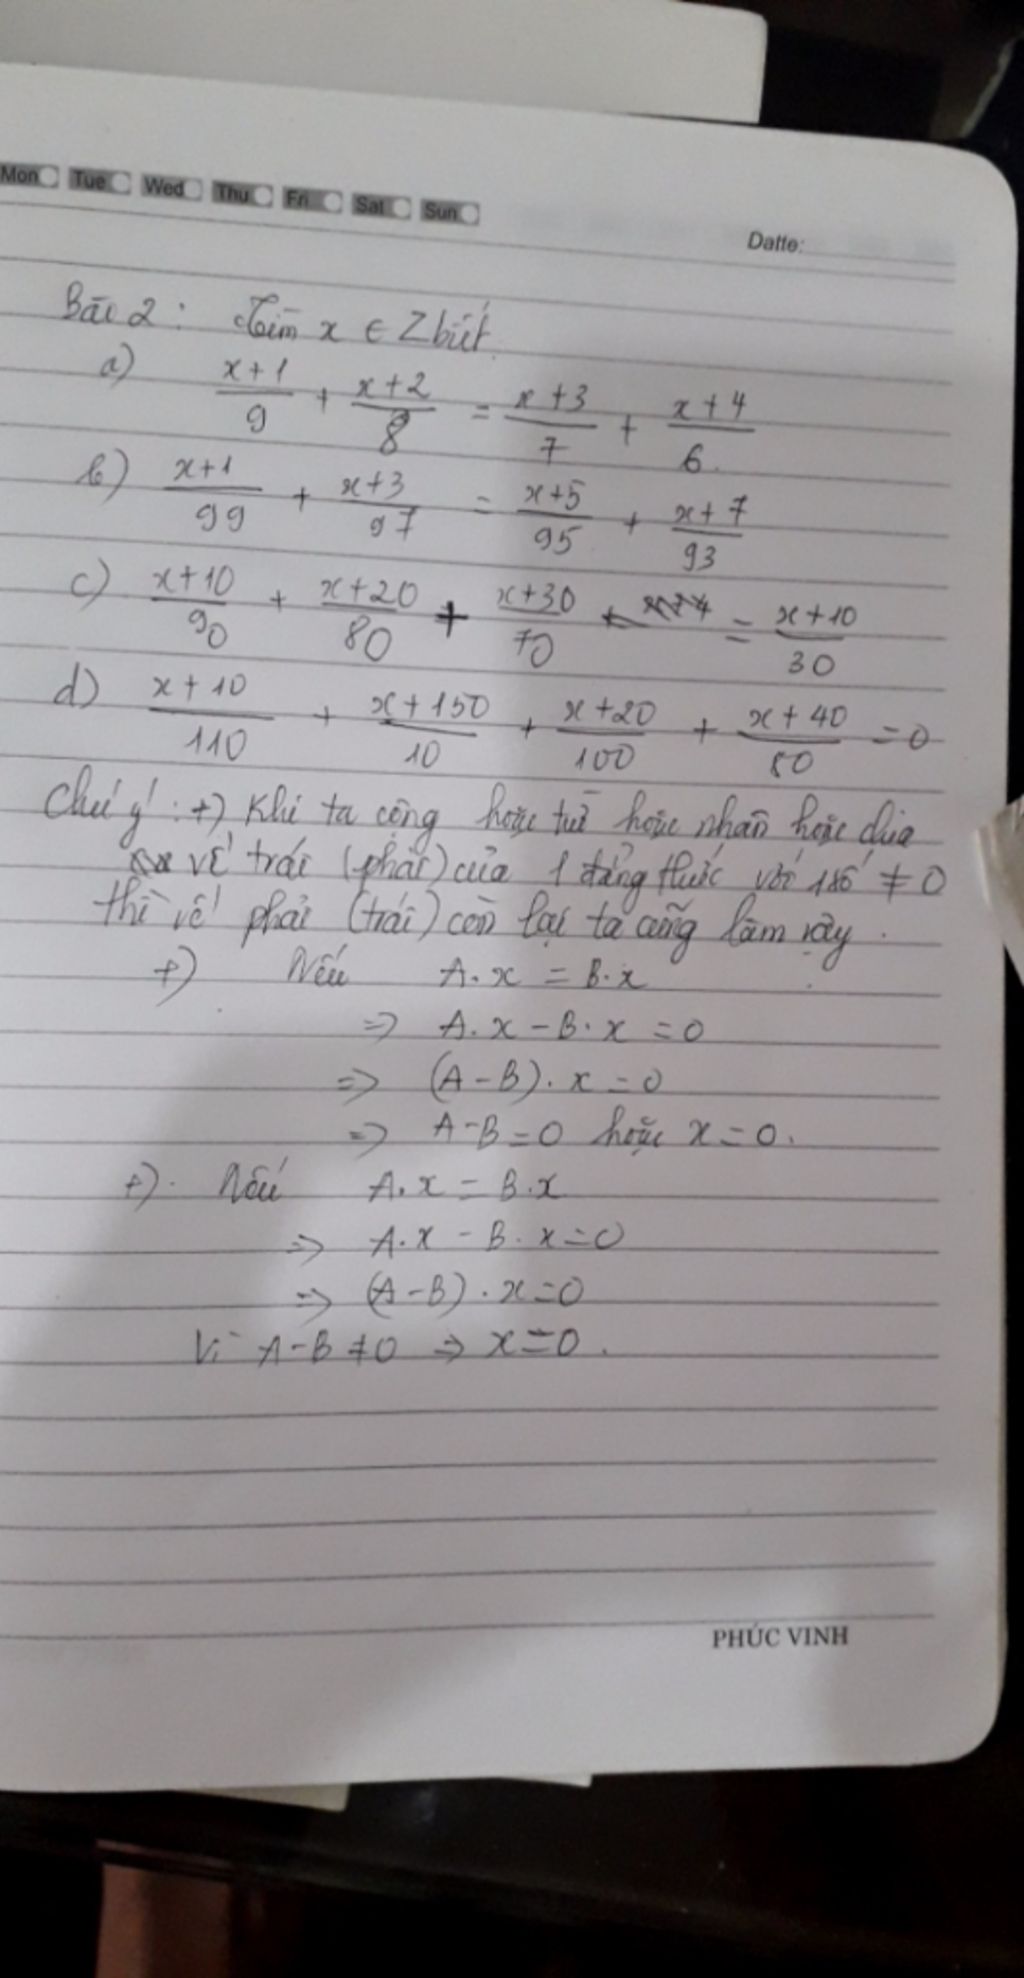 Mon Tue Wed Thu Fri Sat Sun
Datte:
Bài 2 : Tìm x ∈ Z biết
a) (x+1)/9 + (x+2)/8 = (x+3)/7 + (x+4)/6
b) (x+1)/99 + (x+3)/97 = (x+5)/95 + (x+7)/93
c) (x+10)/90 + (x+20)/80 + (x+30)/70 = (x+10)/30
d) (x+10)/110 + (x+150)/10 + (x+20)/100 + (x+40)/80 = 0
Chú ý : +) Khi ta cộng hoặc trừ hoặc nhân hoặc chia
vế trái (phải) của 1 đẳng thức với 1 số ≠ 0
thì vế phải (trái) còn lại ta cũng làm vậy .
+) Nếu A.x = B.x
=> A.x - B.x = 0
=> (A-B).x = 0
=> A-B=0 hoặc x=0.
+). Nếu A.x = B.x
=> A.x - B.x=0
=> (A-B).x=0
Vì A-B ≠0 => x=0 .
PHÚC VINH